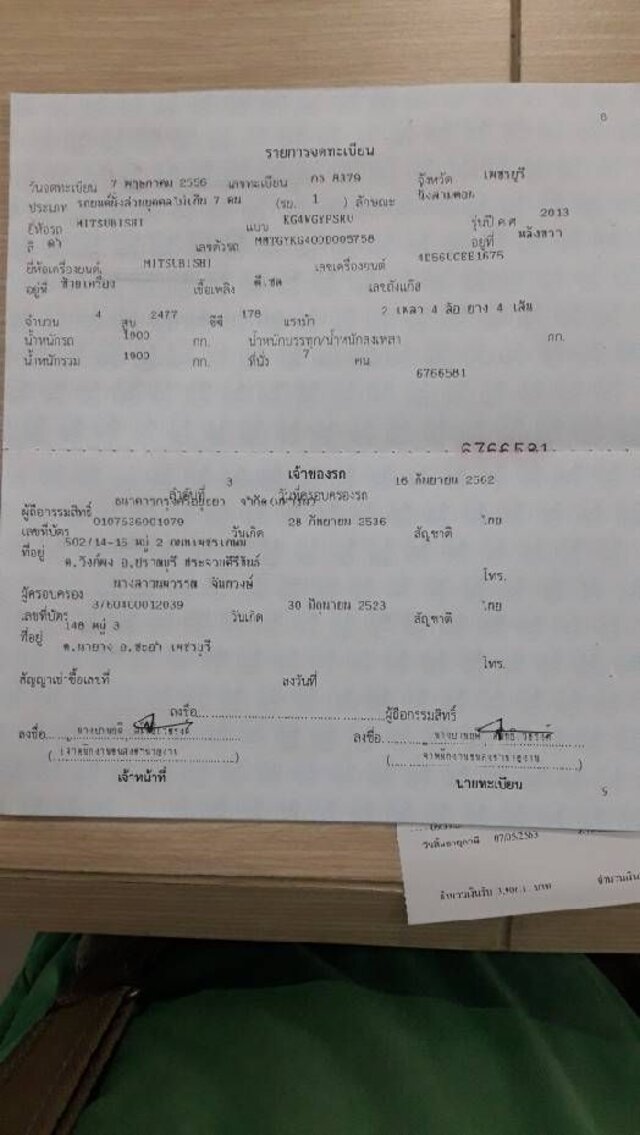 6
รายการจดทะเบียน
วันจดทะเบียน 7 พฤษภาคม 2556 เลขทะเบียน กว 8379 จังหวัด เพชรบุรี
ประเภท รถยนต์นั่งส่วนบุคคลไม่เกิน 7 คน (รย. 1 ) ลักษณะ นั่งสามตอน
ยี่ห้อรถ MITSUBISHI แบบ รุ่นปี ค.ศ 2013
สี ดำ เลขตัวรถ อยู่ที่
ยี่ห้อเครื่องยนต์ MITSUBISHI เลขเครื่องยนต์
อยู่ที่ ซ้ายเครื่อง เชื้อเพลิง ดีเซล เลขถังแก๊ส
จำนวน 4 สูบ 2477 ซีซี 178 แรงม้า 2 เพลา 4 ล้อ ยาง 4 เส้น
น้ำหนักรถ 1900 กก. น้ำหนักบรรทุก/น้ำหนักลงเพลา กก.
น้ำหนักรวม 1900 กก. ที่นั่ง 7 คน
6766581
6766581
เจ้าของรถ
ลำดับที่ 3 วันที่ครอบครองรถ 16 กันยายน 2562
ผู้ถือกรรมสิทธิ์ ธนาคารกรุงศรีอยุธยา จำกัด (มหาชน)
เลขที่บัตร 0107536001079 วันเกิด 28 กันยายน 2536 สัญชาติ ไทย
ที่อยู่ 502/14-15 หมู่ 2 ถนนเพชรเกษม
ต.วังก์พง อ.ปราณบุรี ประจวบคีรีขันธ์ โทร.
ผู้ครอบครอง นางสาว จันทวงษ์
เลขที่บัตร วันเกิด 30 มิถุนายน 2523 สัญชาติ ไทย
ที่อยู่ 148 หมู่ 3
ต.นายาง อ.ชะอำ เพชรบุรี โทร.
สัญญาเช่าซื้อเลขที่ ลงวันที่
ลงชื่อ ผู้ถือกรรมสิทธิ์
ลงชื่อ ลงชื่อ
(เจ้าพนักงานขนส่งชำนาญงาน) (เจ้าพนักงานขนส่งชำนาญงาน)
เจ้าหน้าที่ นายทะเบียน
5
วันสิ้นอายุภาษี 07/05/2563
จำนวนเงิน